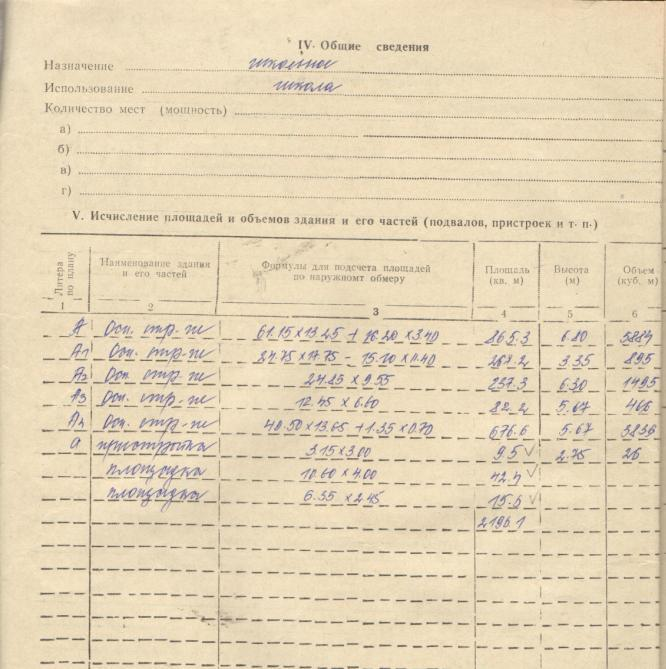 IV. Общие сведения
Назначение школьное
Использование школа
Количество мест (мощность)
а)
б)
в)
г)
V. Исчисление площадей и объемов здания и его частей (подвалов, пристроек и т. п.)
Литера по плану Наименование здания и его частей Формулы для подсчета площадей по наружному обмеру Площадь (кв. м) Высота (м) Объем (куб. м)
1 2 3 4 5 6
А Осн. стр-ие 61.15×13.25 + 16.20×3.40 865.3 6.80 5884
А1 Осн. стр-ие 24.75×17.75 - 15.10×11.40 267.2 3.35 895
А2 Осн. стр-ие 24.85×9.55 237.3 6.30 1495
А3 Осн. стр-ие 12.45×6.60 82.2 5.67 466
А4 Осн. стр-ие 49.50×13.65 + 1.35×0.70 676.6 5.67 3836
а пристройка 3.15×3.00 9.5 √ 2.75 26
площадка 10.60×4.00 42.4 √
площадка 6.35×2.45 15.6 √
2196.1